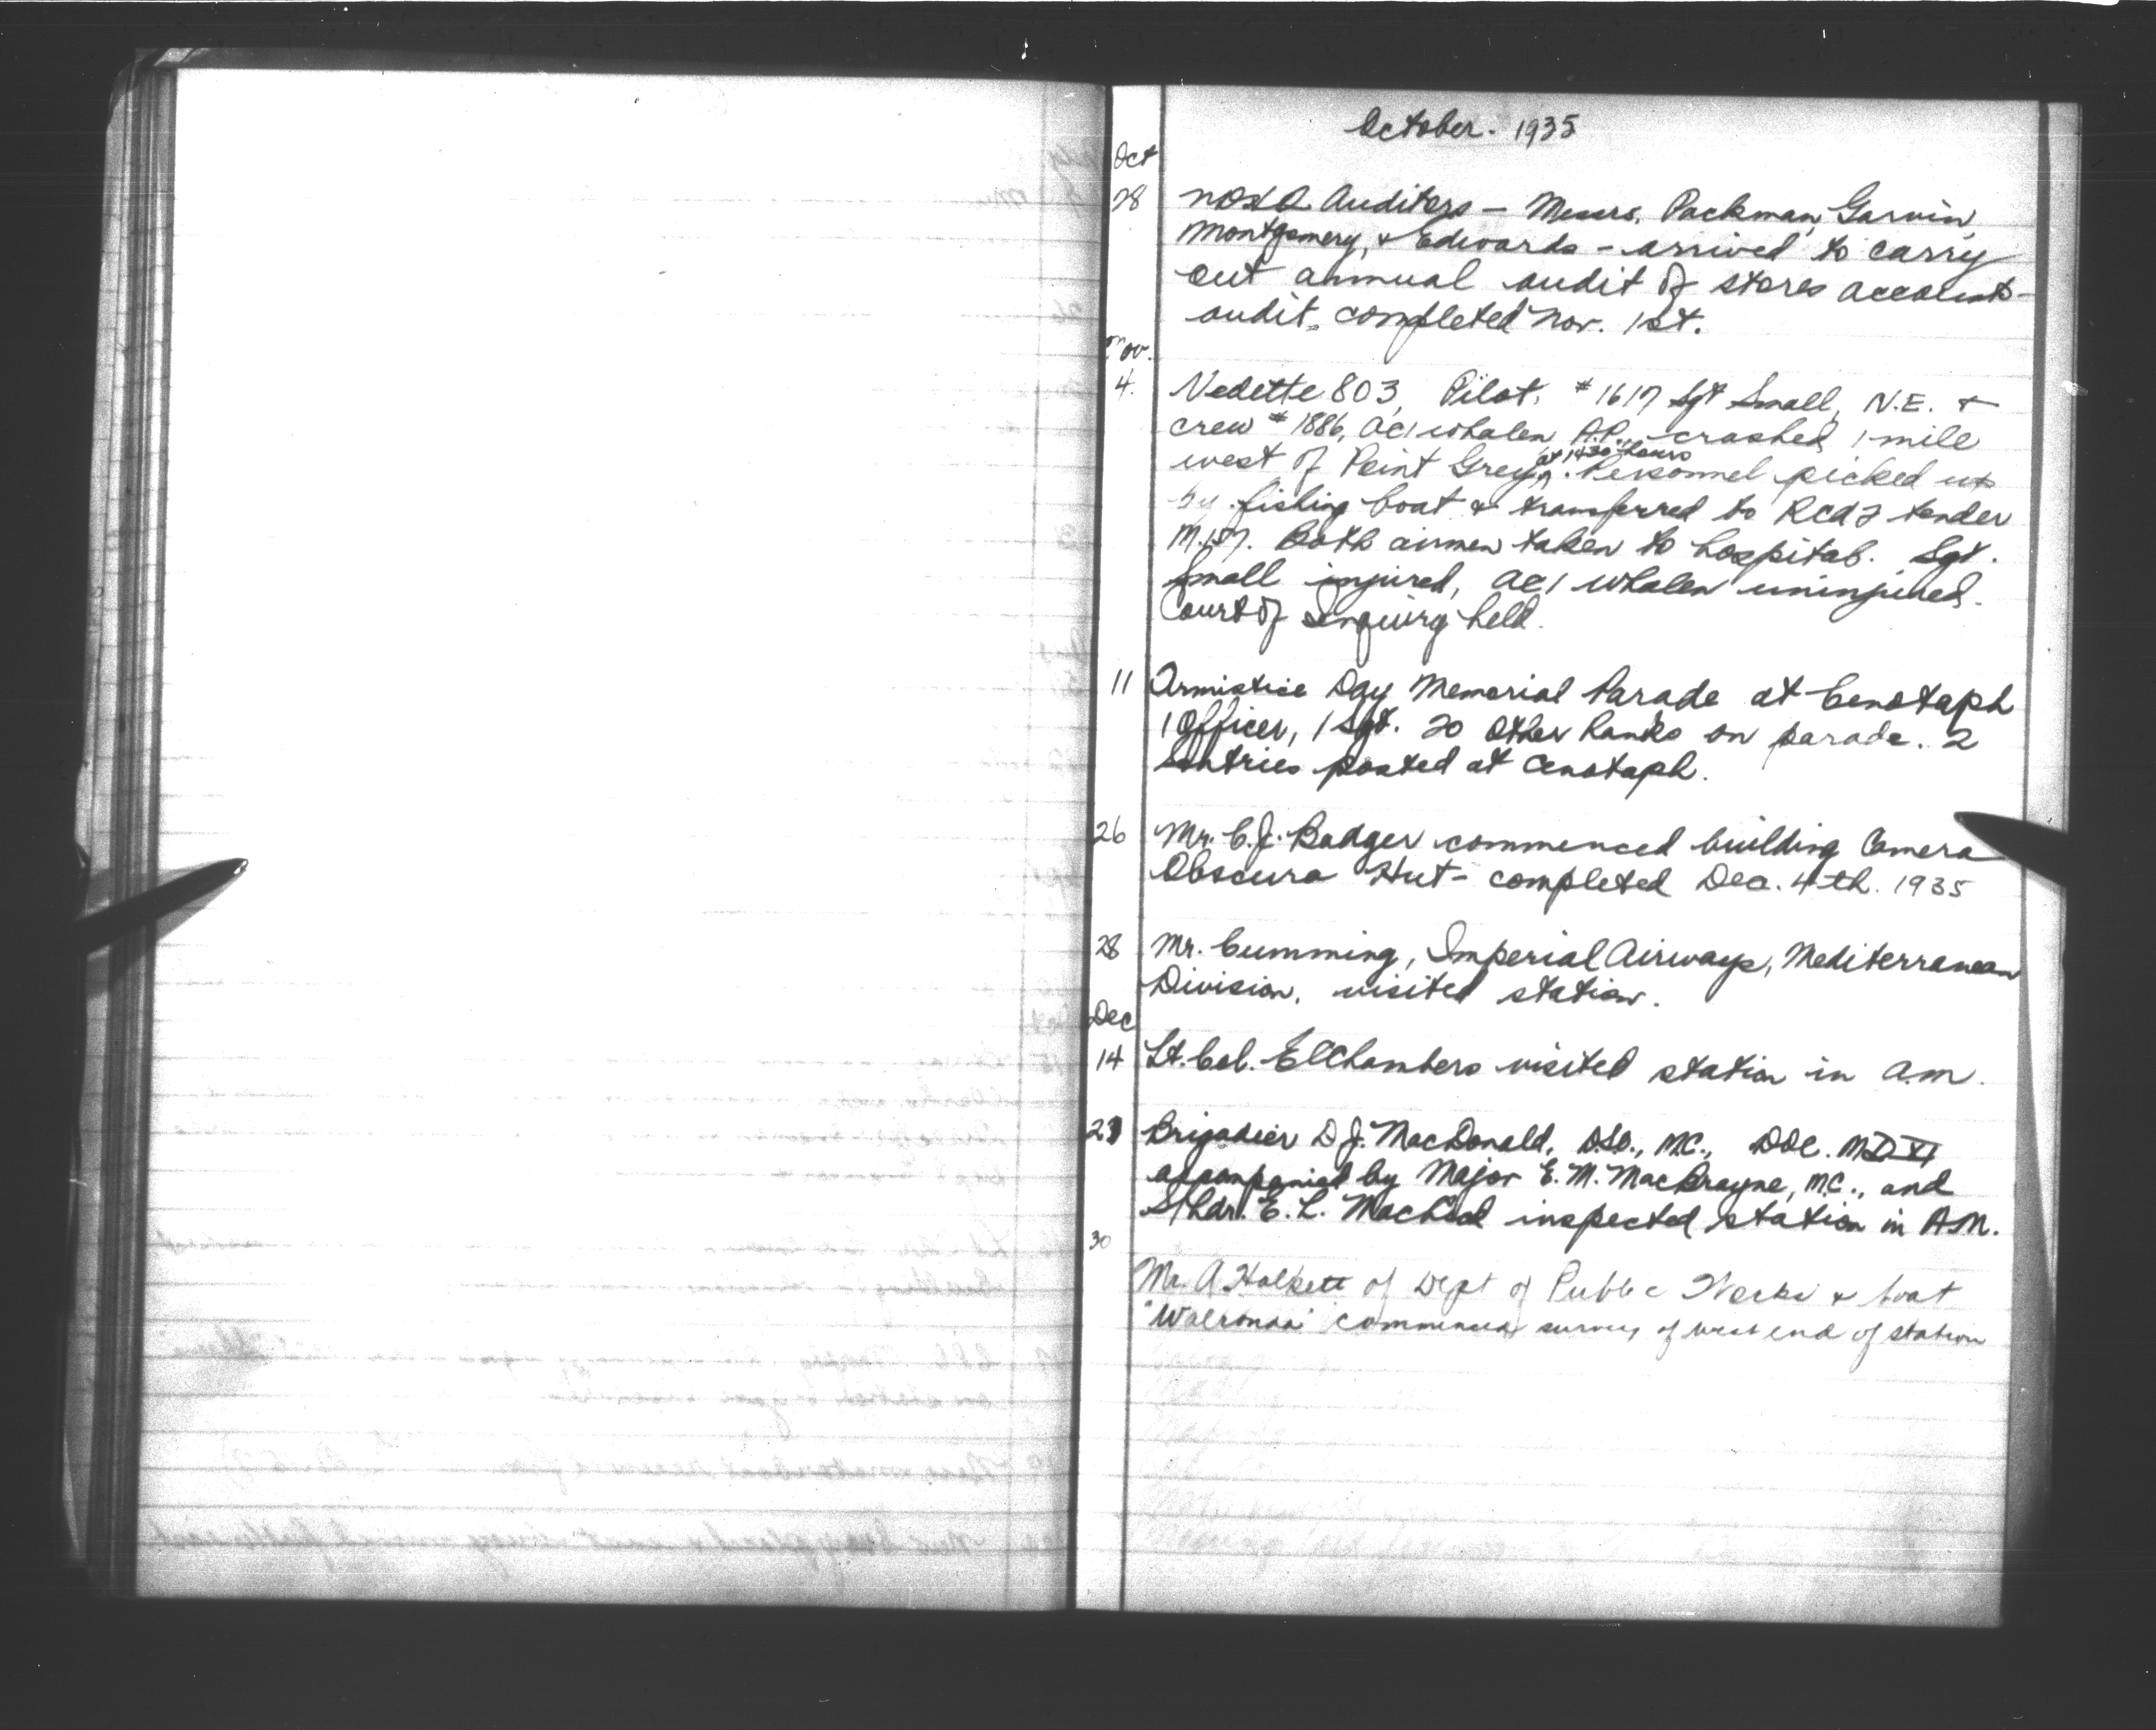 October. 1935
Oct
28 Auditors – Messrs. Packman, Garvin,
Montgomery, & Edwards – arrived to carry
out annual audit of stores accounts –
audit completed Nov. 1st.
Nov.
4. Vedette 803, Pilot, #1617 Sgt Small, N.E. &
crew #1886, AC1 Whalen A.P., crashed 1 mile
west of Point Grey at 1430 hours. Personnel picked up
by fishing boat & transferred to RCAF tender
M.157. Both airmen taken to hospital. Sgt.
Small injured, AC1 Whalen uninjured.
Court of Inquiry held.
11 Armistice Day Memorial Parade at Cenotaph
1 Officer, 1 Sgt. 20 Other Ranks on parade. 2
Sentries posted at Cenotaph.
26 Mr. C.J. Badger commenced building Camera
Obscura Hut – completed Dec. 4th. 1935
28 Mr. Cumming, Imperial Airways, Mediterranean
Division, visited station.
Dec
14 Lt. Col. E Chambers visited station in a.m.
Brigadier D.J. MacDonald, D.S.O., M.C., DOC. MD XI
accompanied by Major E.M. MacBrayne, M.C., and
S/Ldr. E.L. MacLeod inspected station in A.M.
30
Mr. A. Halkett of Dept of Public Works & boat
commenced survey of west end of station